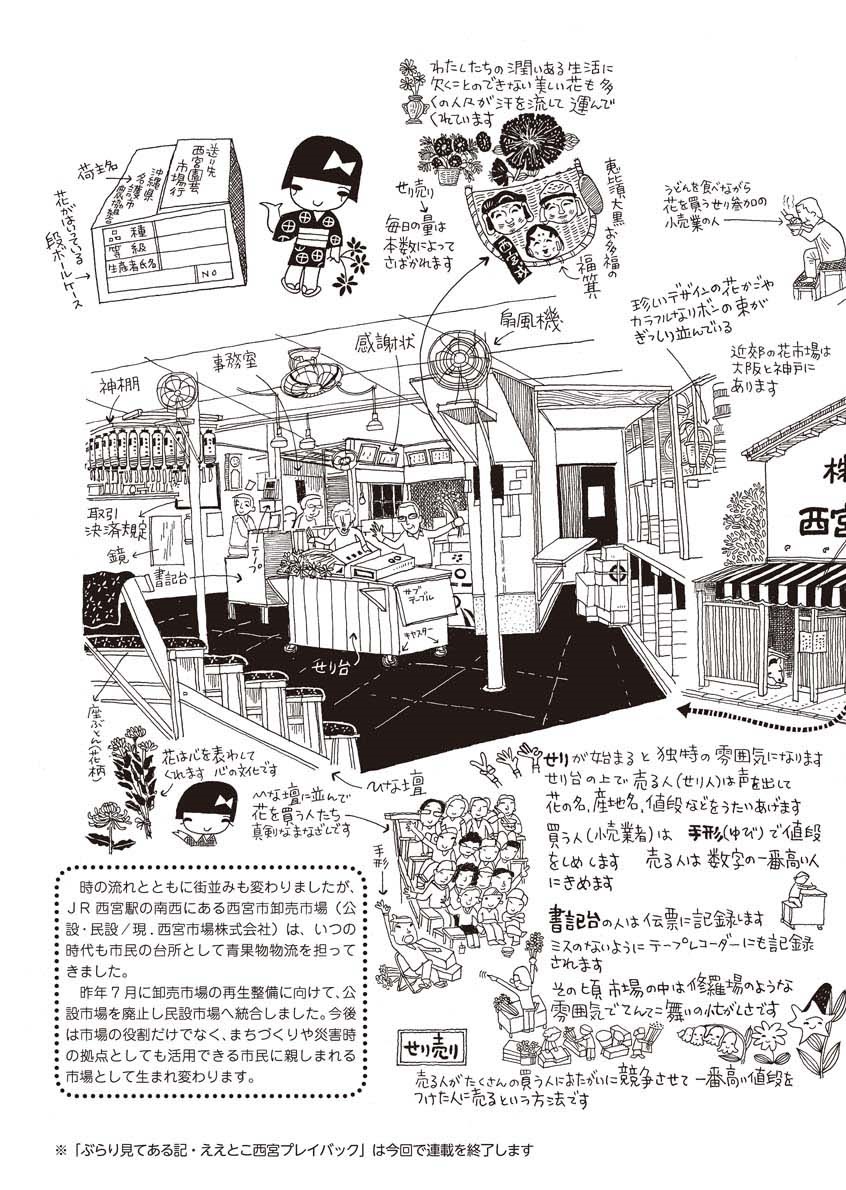 わたしたちの潤いある生活に
欠くことのできない美しい花も多
くの人々が汗を流して運んで
くれています
荷主名
送り先
西宮園芸
市場行
沖縄県
名護市
花がはいっている
段ボールケース
品種
等級
生産者氏名
NO
せり売り
毎日の量は
本数によって
さばかれます
恵比須大黒お多福の
福箕
西宮
うどんを食べながら
花を買うせり参加の
小売業の人
珍しいデザインの花かごや
カラフルなリボンの束が
ぎっしり並んでいる
近郊の花市場は
大阪と神戸に
あります
扇風機
感謝状
事務室
神棚
取引
決済規定
鏡
書記台
テープ
サブ
テーブル
キャスター
せり台
株
西宮
座ぶとん(花柄)
花は心を表わして
くれます 心の文化です
ひな壇
ひな壇に並んで
花を買う人たち
真剣なまなざしです
手形
せりが始まると独特の雰囲気になります
せり台の上で売る人(せり人)は声を出して
花の名、産地名、値段などをうたいあげます
買う人(小売業者)は 手形(ゆび)で値段
をしめします 売る人は数字の一番高い人
にきめます
書記台の人は伝票に記録します
ミスのないようにテープレコーダーにも記録
されます
その頃市場の中は修羅場のような
雰囲気でてんこ舞いの忙がしさです
せり売り
売る人がたくさんの買う人におたがいに競争させて一番高い値段を
つけた人に売るという方法です
時の流れとともに街並みも変わりましたが、
JR西宮駅の南西にある西宮市卸売市場（公
設・民設／現．西宮市場株式会社）は、いつの
時代も市民の台所として青果物物流を担って
きました。
昨年７月に卸売市場の再生整備に向けて、公
設市場を廃止し民設市場へ統合しました。今後
は市場の役割だけでなく、まちづくりや災害時
の拠点としても活用できる市民に親しまれる
市場として生まれ変わります。
※「ぶらり見てある記・ええとこ西宮プレイバック」は今回で連載を終了します